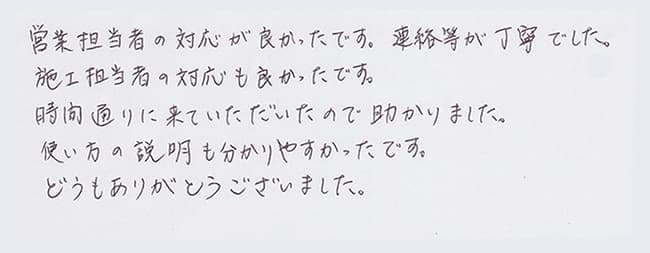 営業担当者の対応が良かったです。連絡等が丁寧でした。
施工担当者の対応も良かったです。
時間通りに来ていただいたので助かりました。
使い方の説明も分かりやすかったです。
どうもありがとうございました。